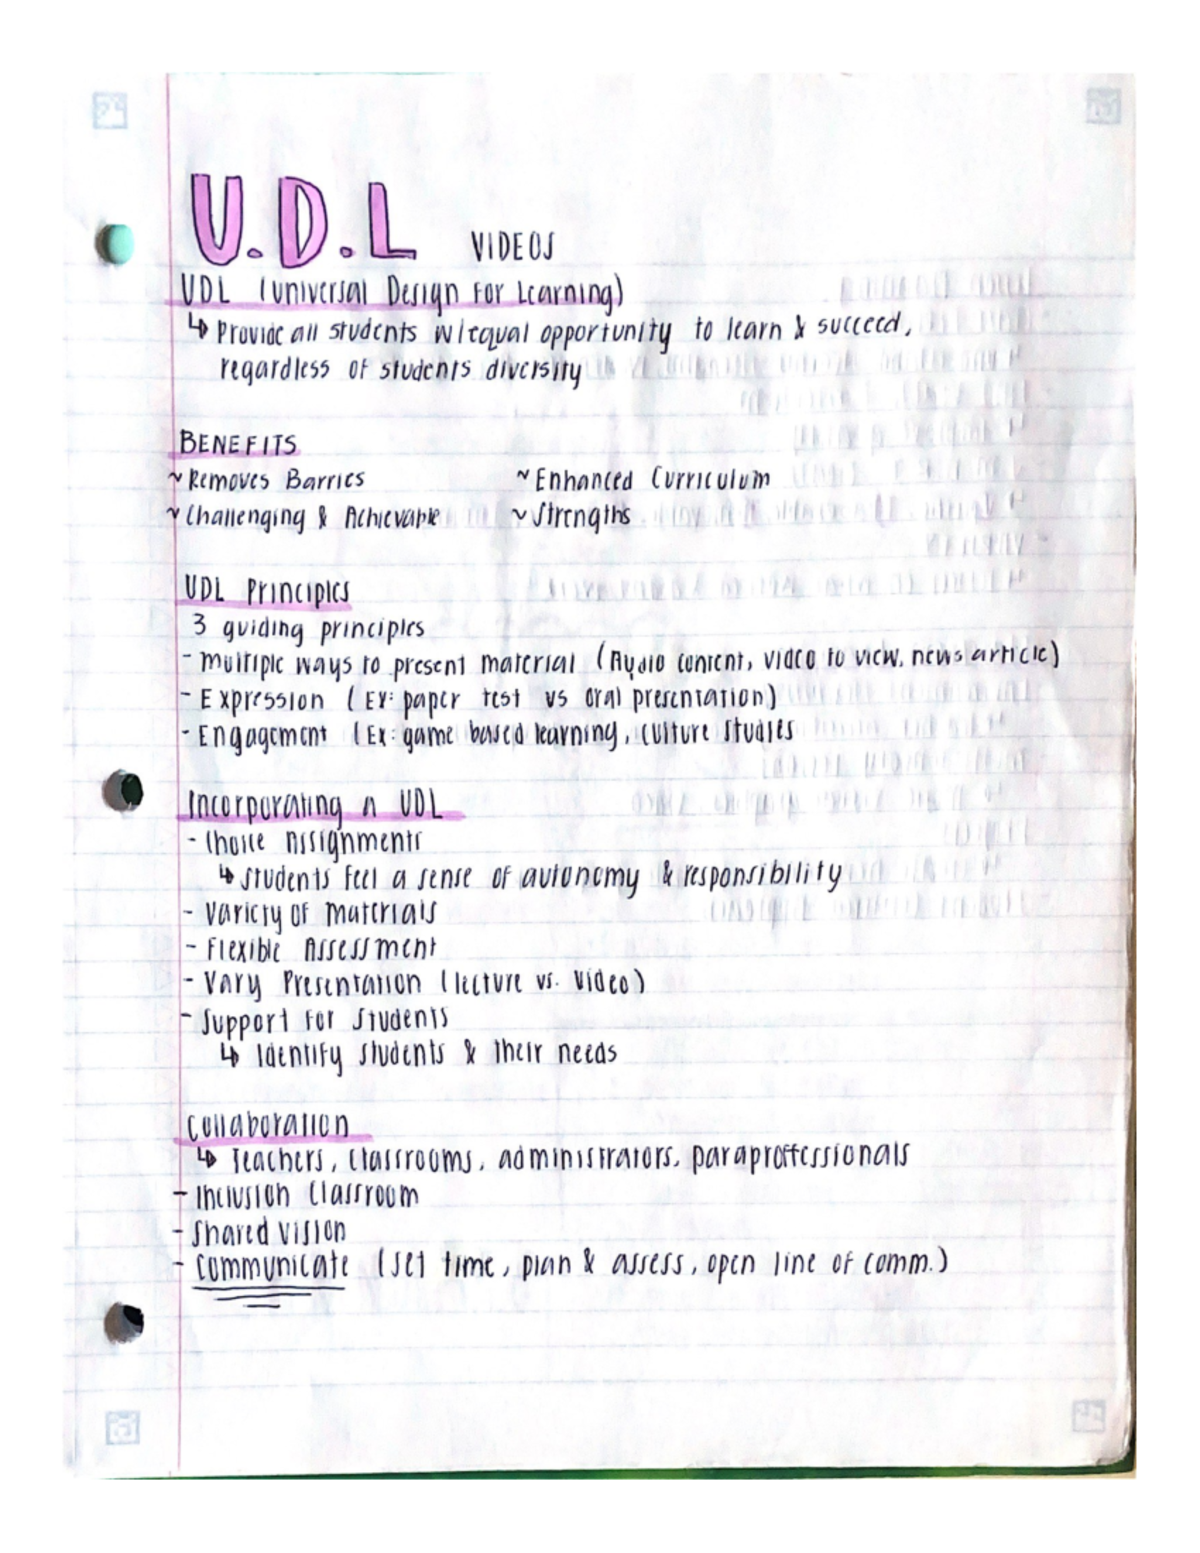 U.D.L VIDEOS
UDL (Universal Design For Learning)
↳ Provide all students w/equal opportunity to learn & succeed,
regardless of students diversity
BENEFITS
~ Removes Barries
~ Enhanced Curriculum
~ Challenging & Achievable
~ Strengths
UDL Principles
3 guiding principles
- Multiple ways to present material (Audio content, video to view, news article)
- Expression (Ex: paper test vs oral presentation)
- Engagement (Ex: game based learning, culture studies
Incorporating a UDL
- Choice Assignments
↳ Students feel a sense of autonomy & responsibility
- Variety of materials
- Flexible Assessment
- Vary Presentation (lecture vs. Video)
- Support for Students
↳ Identify students & their needs
Collaboration
↳ Teachers, Classrooms, administrators, paraproffessionals
- Inclusion Classroom
- Shared vision
- Communicate (set time, plan & assess, open line of comm.)